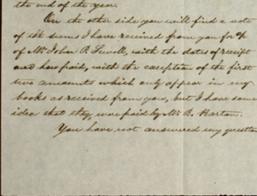 the end of the year.
On the other side you will find a note
of the sums I have received from you for a/c
of Mr. John A. Lowell, with the dates of receipt
and how paid, with the exception of the first
two amounts which only appear in my
books as received from you, but I have some
idea that they were paid by Mr. B. Barton.
You have not answered my question